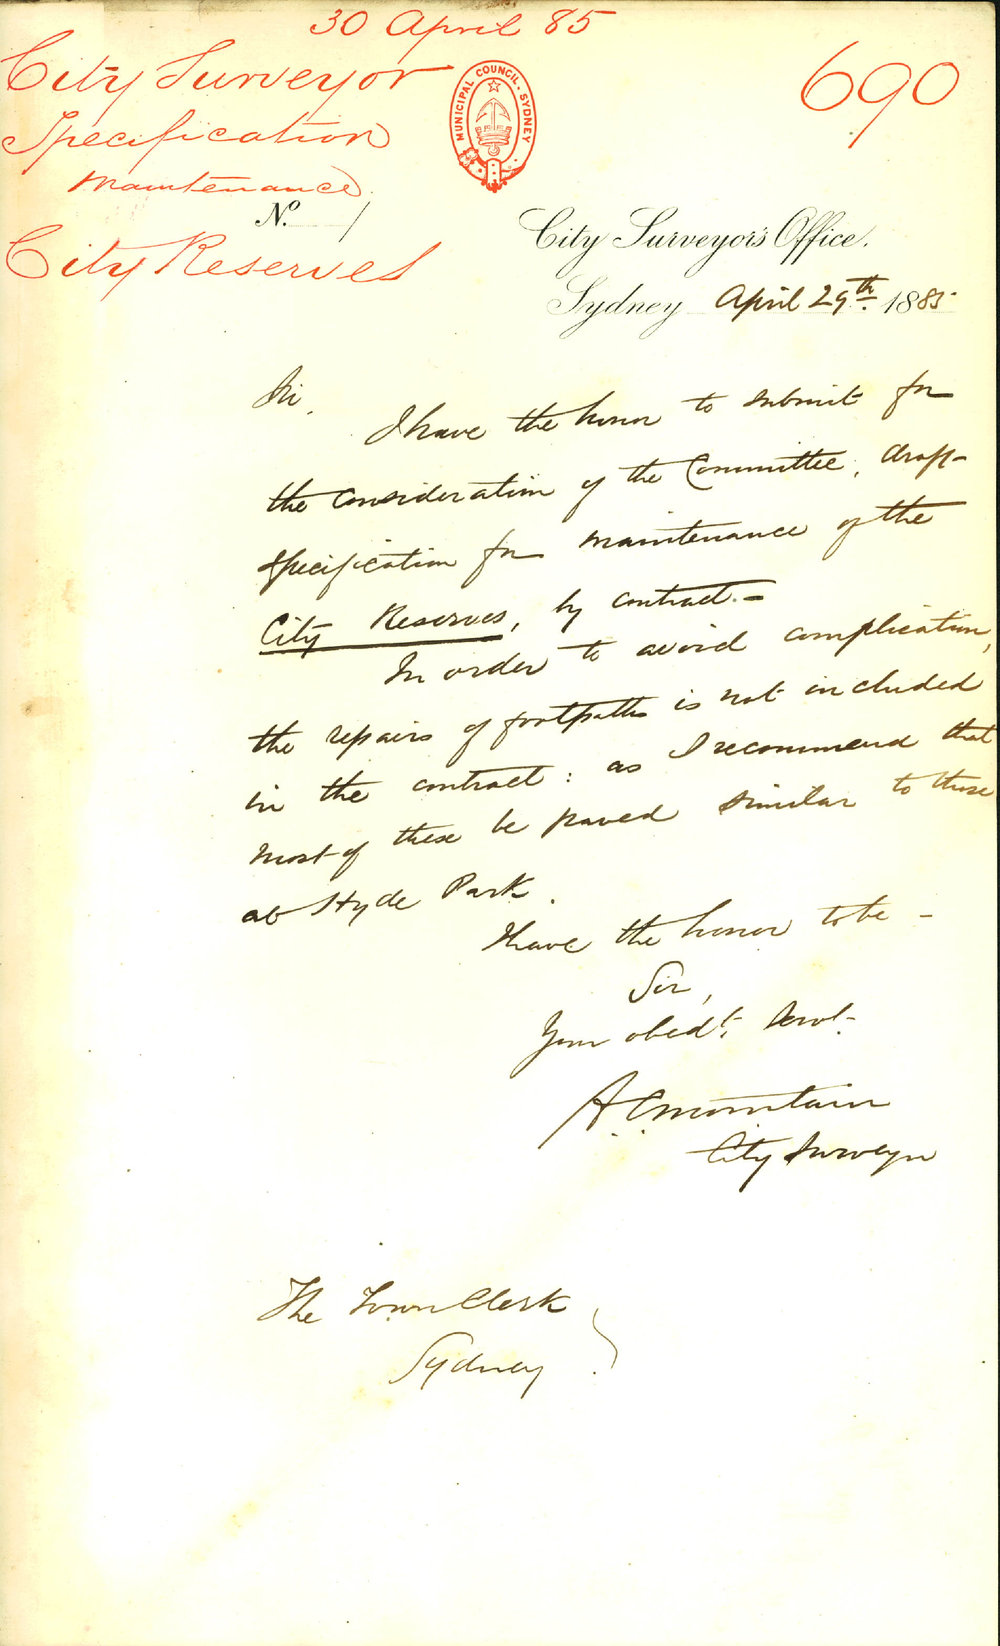 30 April 85
City Surveyor
690
MUNICIPAL COUNCIL. SYDNEY
Specification
Maintenance
No. /
City Surveyor's Office.
City Reserves
Sydney April 29th. 1885
Sir,
I have the honor to submit for
the consideration of the Committee, draft
specification for maintenance of the
City Reserves, by contract.-
In order to avoid complication,
the repairs of footpaths is not included
in the contract: as I recommend that
most of these be paved similar to those
at Hyde Park.
I have the honor to be -
Sir,
Your obedt. Servt.
A.C. Mountain
City Surveyor
The Town Clerk
Sydney